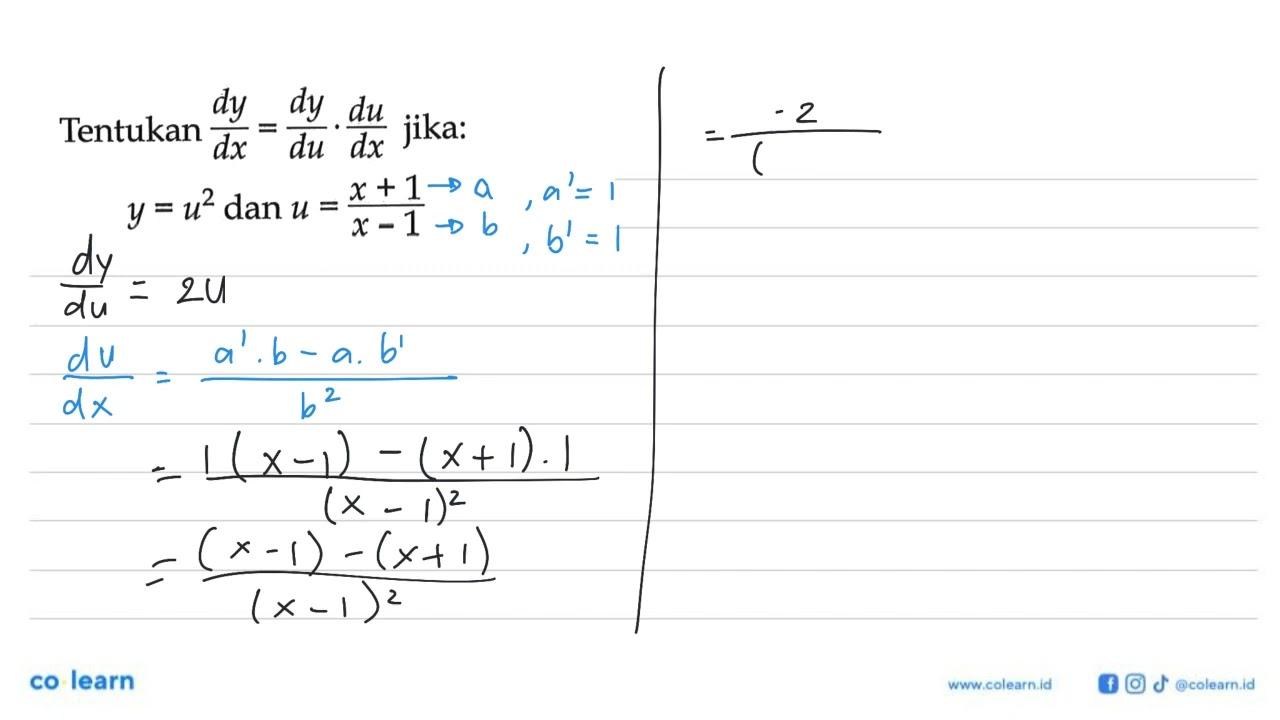 Tentukan dy/dx = dy/du · du/dx jika:
y = u² dan u = (x + 1)/(x – 1)
→ a , a' = 1
→ b , b' = 1
dy/du = 2u
du/dx = (a' . b – a . b')/b²
= (1(x – 1) – (x + 1) . 1)/(x – 1)²
= ((x – 1) – (x + 1))/(x – 1)²
= -2/(
co learn
www.colearn.id
@colearn.id